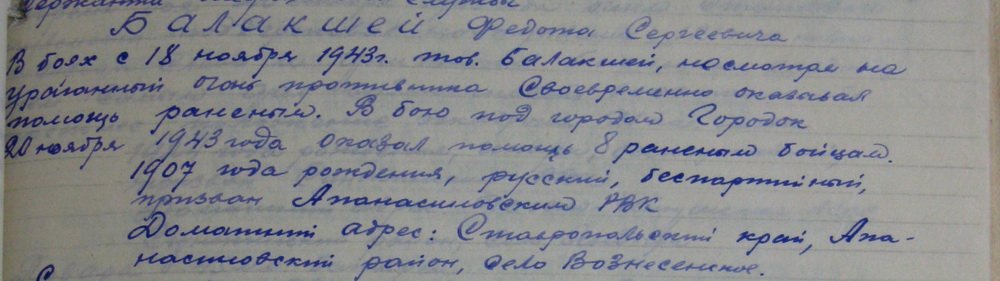 сержанта медицинской службы
Балакшей Федота Сергеевича
В боях с 18 ноября 1943г. тов. Балакшей, несмотря на
ураганный огонь противника своевременно оказывал
помощь раненым. В бою под городом Городок
20 ноября 1943 года оказал помощь 8 раненым бойцам.
1907 года рождения, русский, беспартийный,
призван Апанасиловским РВК
Домашний адрес: Ставропольский край, Апа-
насиловский район, село Вознесенское.